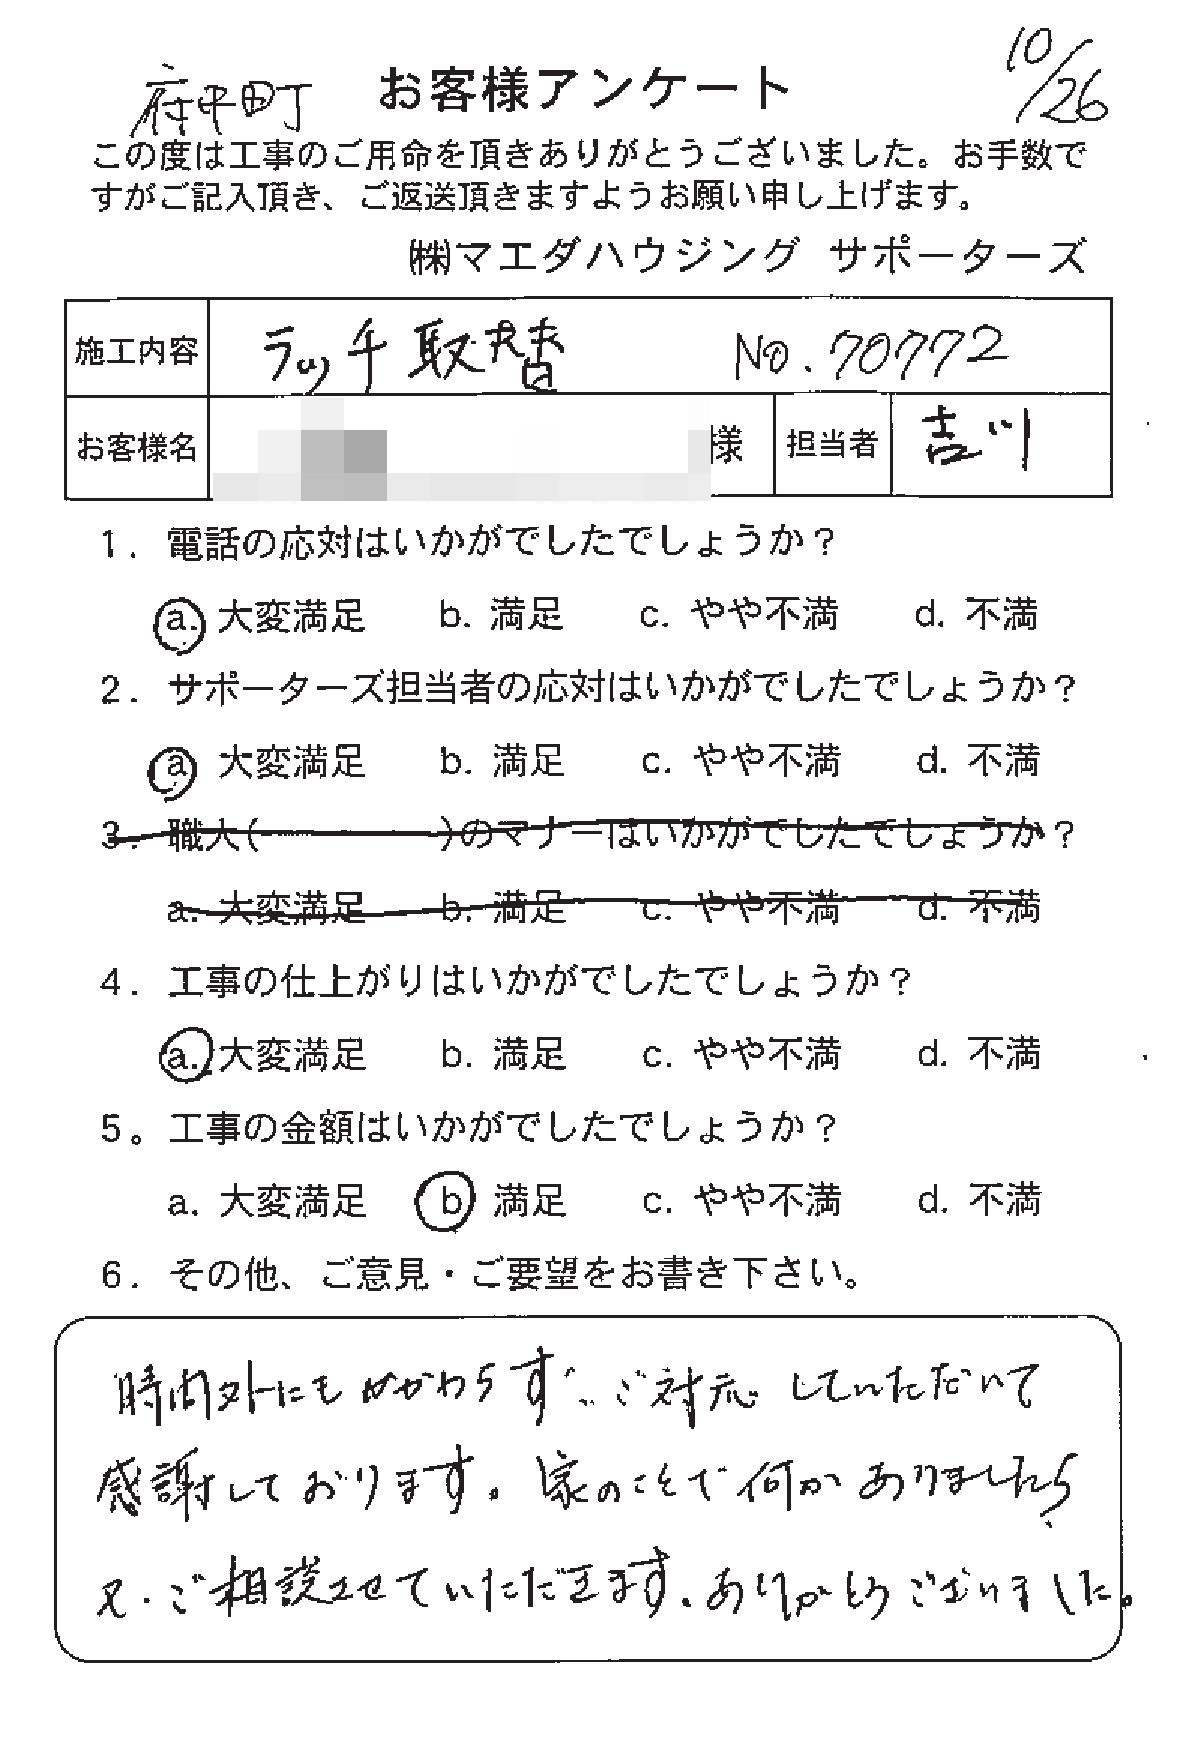 府中町
お客様アンケート
10/26
この度は工事のご用命を頂きありがとうございました。お手数で
すがご記入頂き、ご返送頂きますようお願い申し上げます。
㈱マエダハウジング サポーターズ
施工内容 ラッチ取替 No.70772
お客様名 様 担当者 吉川
1. 電話の応対はいかがでしたでしょうか？
a. 大変満足 b. 満足 c. やや不満 d. 不満
2. サポーターズ担当者の応対はいかがでしたでしょうか？
a 大変満足 b. 満足 c. やや不満 d. 不満
3. 職人( )のマナーはいかがでしたでしょうか？
a. 大変満足 b. 満足 c. やや不満 d. 不満
4. 工事の仕上がりはいかがでしたでしょうか？
a. 大変満足 b. 満足 c. やや不満 d. 不満
5。工事の金額はいかがでしたでしょうか？
a. 大変満足 b 満足 c. やや不満 d. 不満
6. その他、ご意見・ご要望をお書き下さい。
時間外にもかかわらず、ご対応していただいて
感謝しております。家のことで何かありましたら、
又、ご相談させていただきます。ありがとうございました。